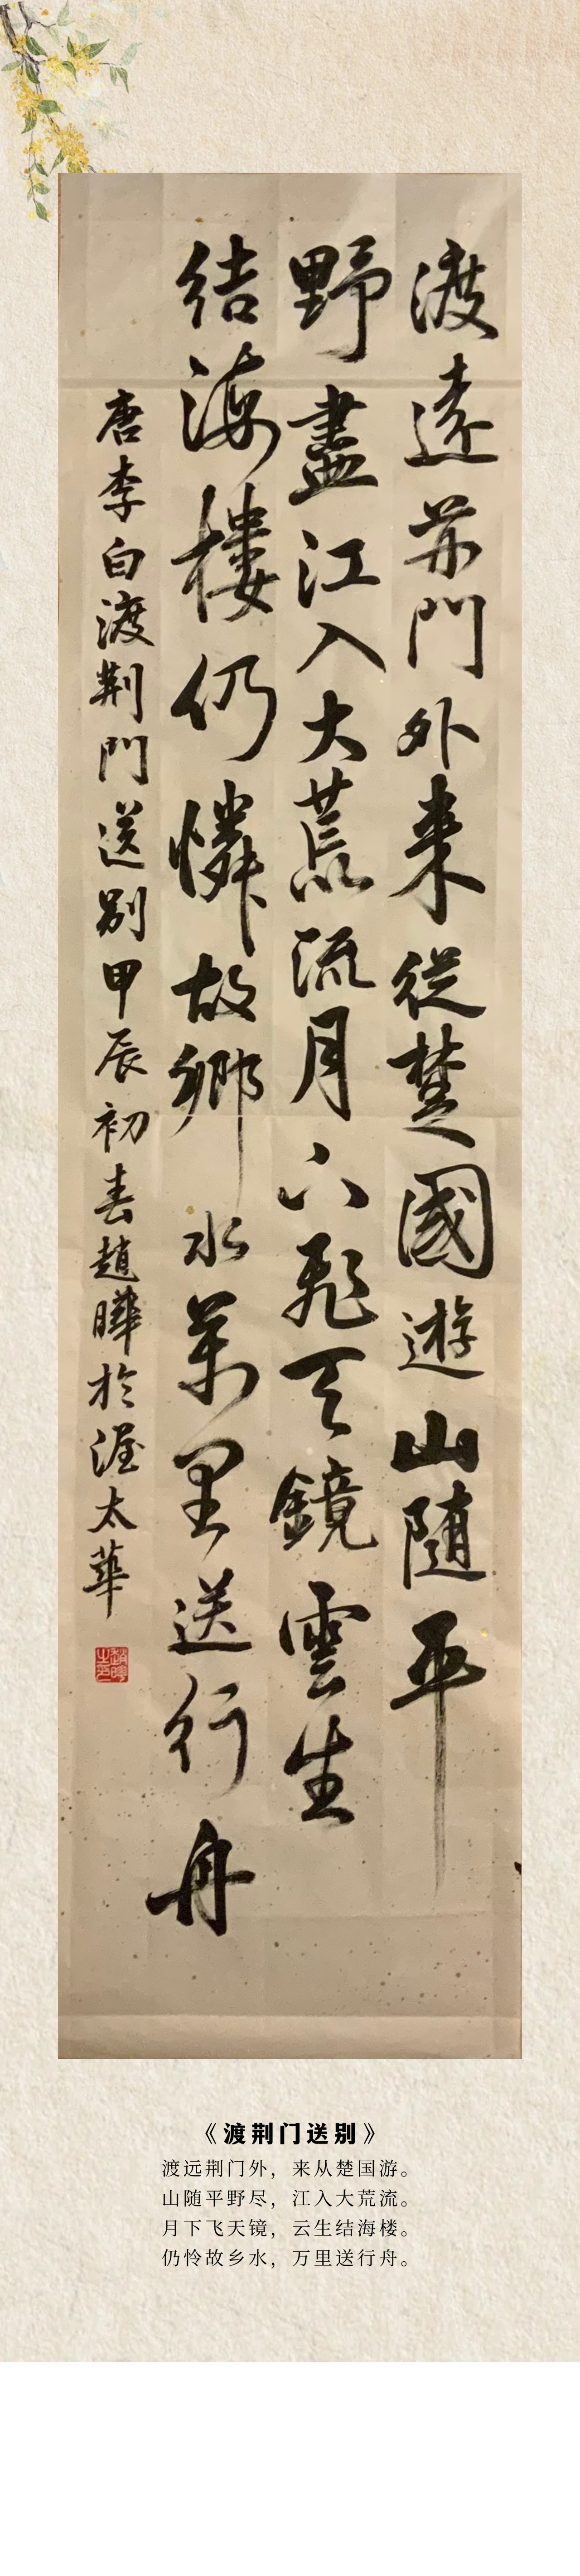 渡遠荆門外来從楚國遊山随平
野盡江入大荒流月下飛天鏡雲生
结海樓仍憐故鄉水萬里送行舟
唐李白渡荆門送别甲辰初春趙曄於渥太華
《渡荆门送别》
渡远荆门外，来从楚国游。
山随平野尽，江入大荒流。
月下飞天镜，云生结海楼。
仍怜故乡水，万里送行舟。